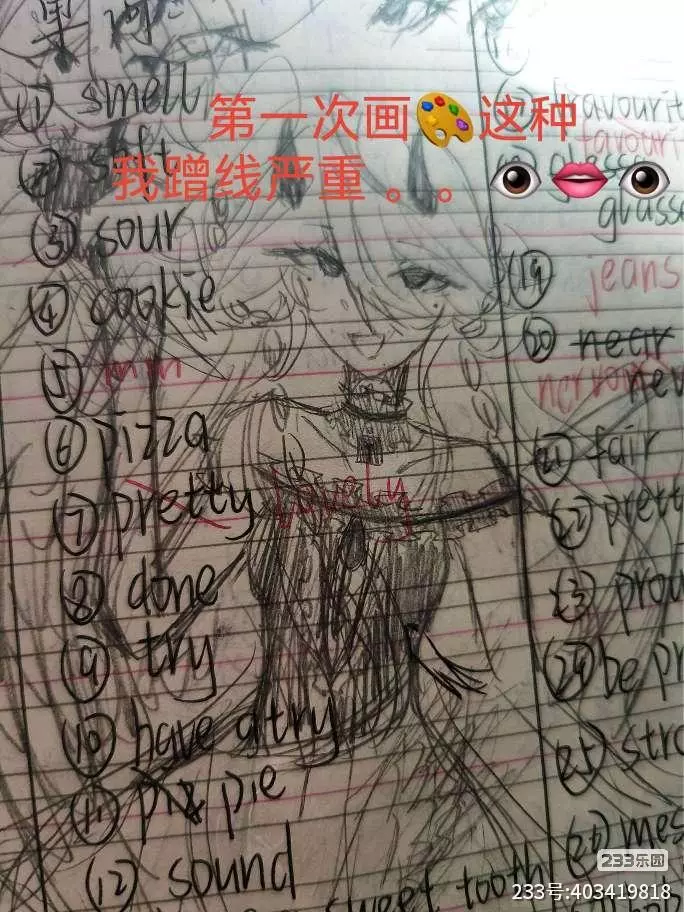 第一次画🎨这种
我蹭线严重 。。👁️👄👁️
① smell
② salt
③ sour
④ cookie
⑤ mm
⑥ pizza
⑦ pretty lovely
⑧ done
⑨ try
⑩ have a try
⑪ pie
⑫ sound
sweet tooth
favouri
glasse
glasse
⑲ jeans
⑳ near
nervou
ner
㉑ fair
㉒ prett
㉓ prou
㉔ be pr
㉕ stra
㉖ mes
233乐园
233号:403419818